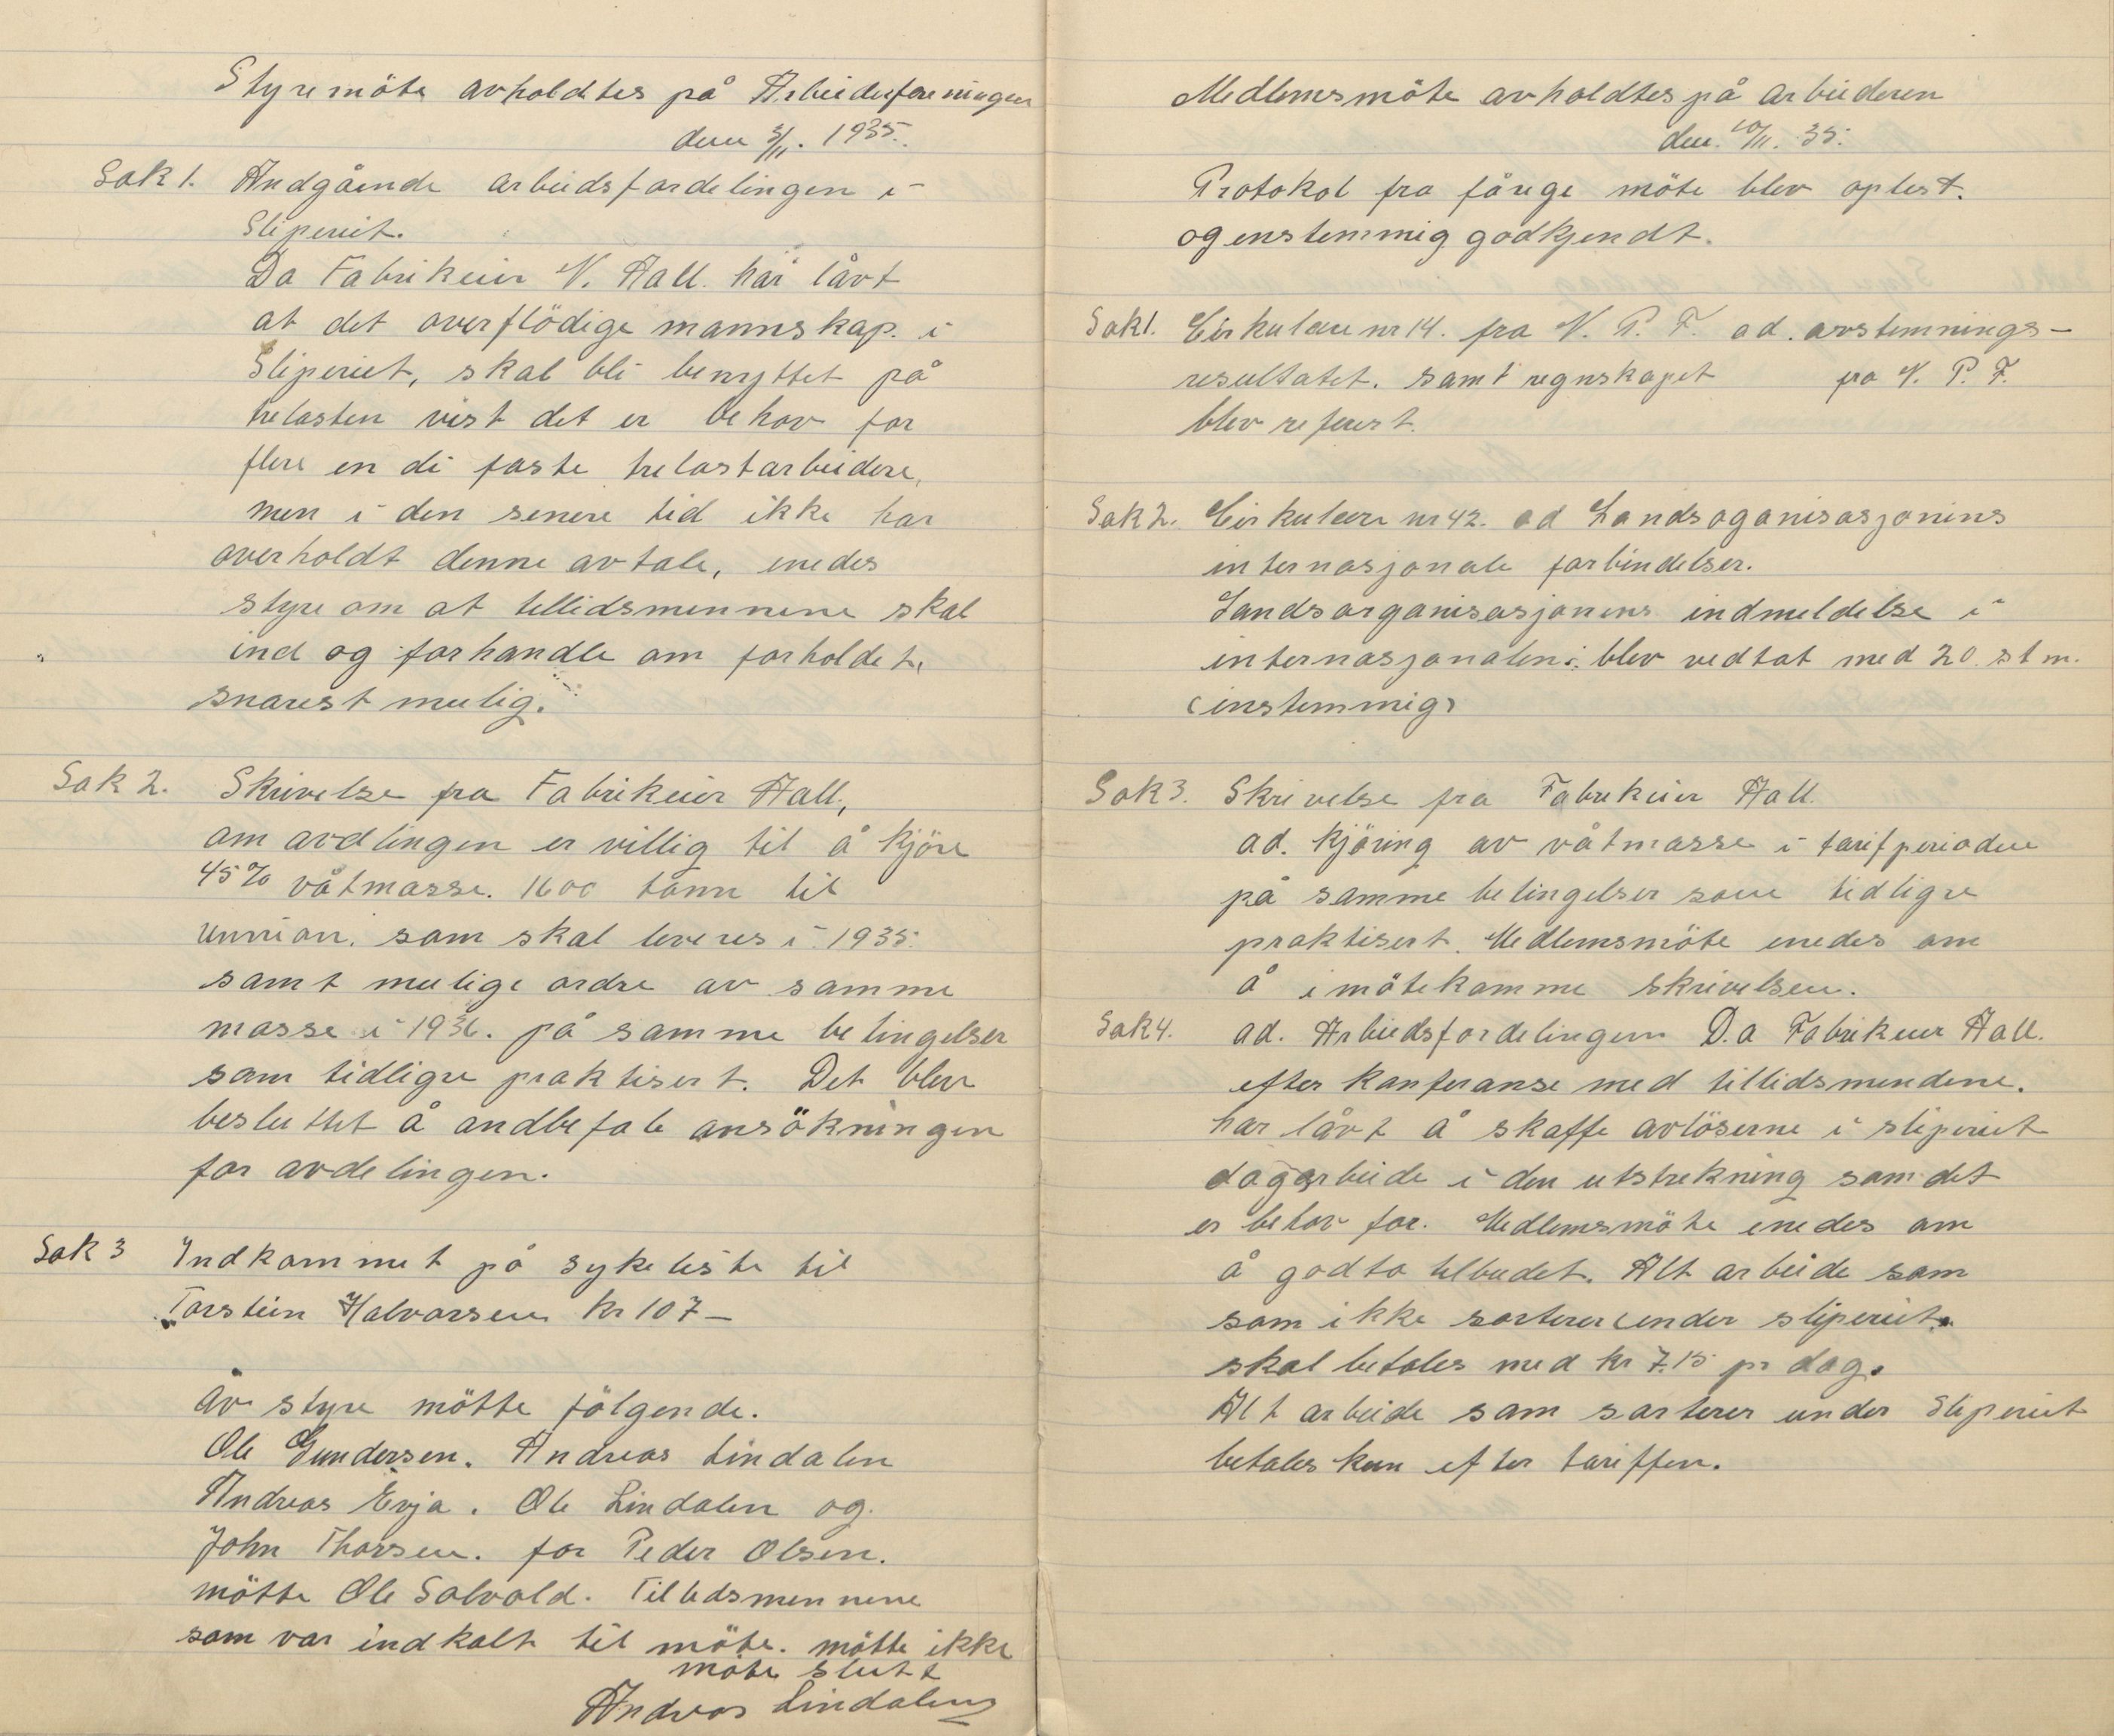 Styremöte avholdtes på Arbeiderforeningen
den 3/11. 1935.
Sak 1. Andgående arbeidsfordelingen i
Sliperiet.
Da Fabrikeier N. Aall. har låvt
at det overflödige mannskap. i
Sliperiet, skal bli benyttet på
trelasten vist det er behov for
flere en di faste trelastarbeidere,
men i den senere tid ikke har
overholdt denne avtale, enedes
styre om at tillidsmennene skal
ind og forhandle om forholdet,
snarest mulig.
Sak 2. Skrivelse fra Fabrikeier Aall,
om avdlingen er villig til å kjöre
45% våtmasse. 1600 tonn til
unnion. som skal leveres i 1935.
samt mulige ordre av samme
masse i 1936. på samme betingelser
som tidligre praktisert. Det blev
besluttet å andbefale ansökningen
for avdelingen.
Sak 3 Indkommet på sykeliste til
Torstein Halvorsen kr 107-
av styre mötte fölgende.
Ole Gundersen. Andreas Lindalen
Andreas Evja. Ole Lindalen og.
John Thorsen. for Peder Olsen.
mötte Ole Solvold. Tilledsmennene
som var indkalt til möte. mötte ikke
möte slutt
Andreas Lindalen
Medlemsmöte avholdtes på arbeideren
den. 10/11. 35.
Protokol fra fårige möte blev oplest.
og enstemmig godkjendt.
Sak 1. Cirkulære nr 14. fra N. P. F. ad. avstemnings-
resultatet. samt regnskapet fra N. P. F.
blev referert.
Sak 2. Cirkulære nr 42. ad Landsoganisasjonins
internasjonale forbindelser.
Landsorganisasjonens indmeldelse i
internasjonalen: blev vedtat med 20. stm.
(instemmig)
Sak 3. Skrivelse fra Fabrikeier Aall.
ad. kjöring av våtmasse i tarifperioden
på samme betingelser som tidligre
praktisert. Medlemsmöte enedes om
å imötekomme skrivelsen.
Sak 4. ad. Arbiedsfordelingen D.a Fabrikeier Aall.
efter konferanse med tillidsmendene.
har låvt å skaffe avlöserne i sliperiet
dagarbeide i den utstrekning som det
er behov for. Medlemsmöte enedes om
å godta tilbudet. Alt arbeide som
som ikke sorterer under sliperiet.
skal betales med kr 7.15 pr dag.
Alt arbeide som sorterer under Sliperiet
betales kun efter tariffen.